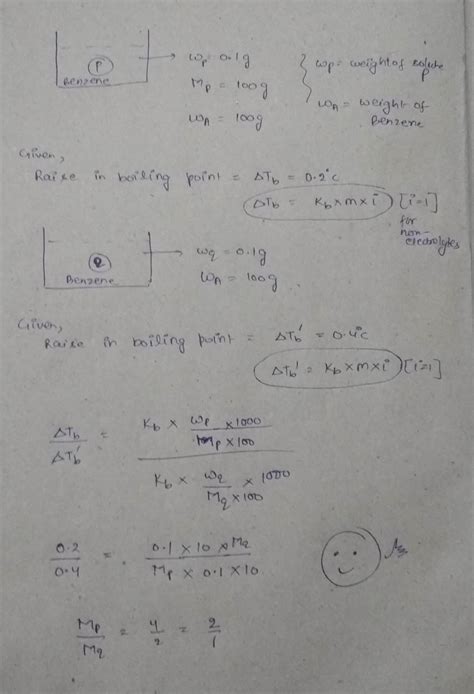 P
Benzene
→ wp = 0.1g
Mp = 100g
wA = 100g
wp = weight of solute
P
wA = weight of Benzene
Given,
Raise in boiling point = ΔTb = 0.2°c
ΔTb = Kb × m × i [i=1]
for non-electrolytes
Q
Benzene
→ wq = 0.1g
wA = 100g
Given,
Raise in boiling point = ΔTb' = 0.4°c
ΔTb' = Kb × m × i [i=1]
ΔTb / ΔTb' = Kb × wp × 1000 / Mp × 100
Kb × wq / Mq × 100 × 1000
0.2 / 0.4 = 0.1 × 10 × Mq / Mp × 0.1 × 10
Mp / Mq = 4 / 2 = 2 / 1